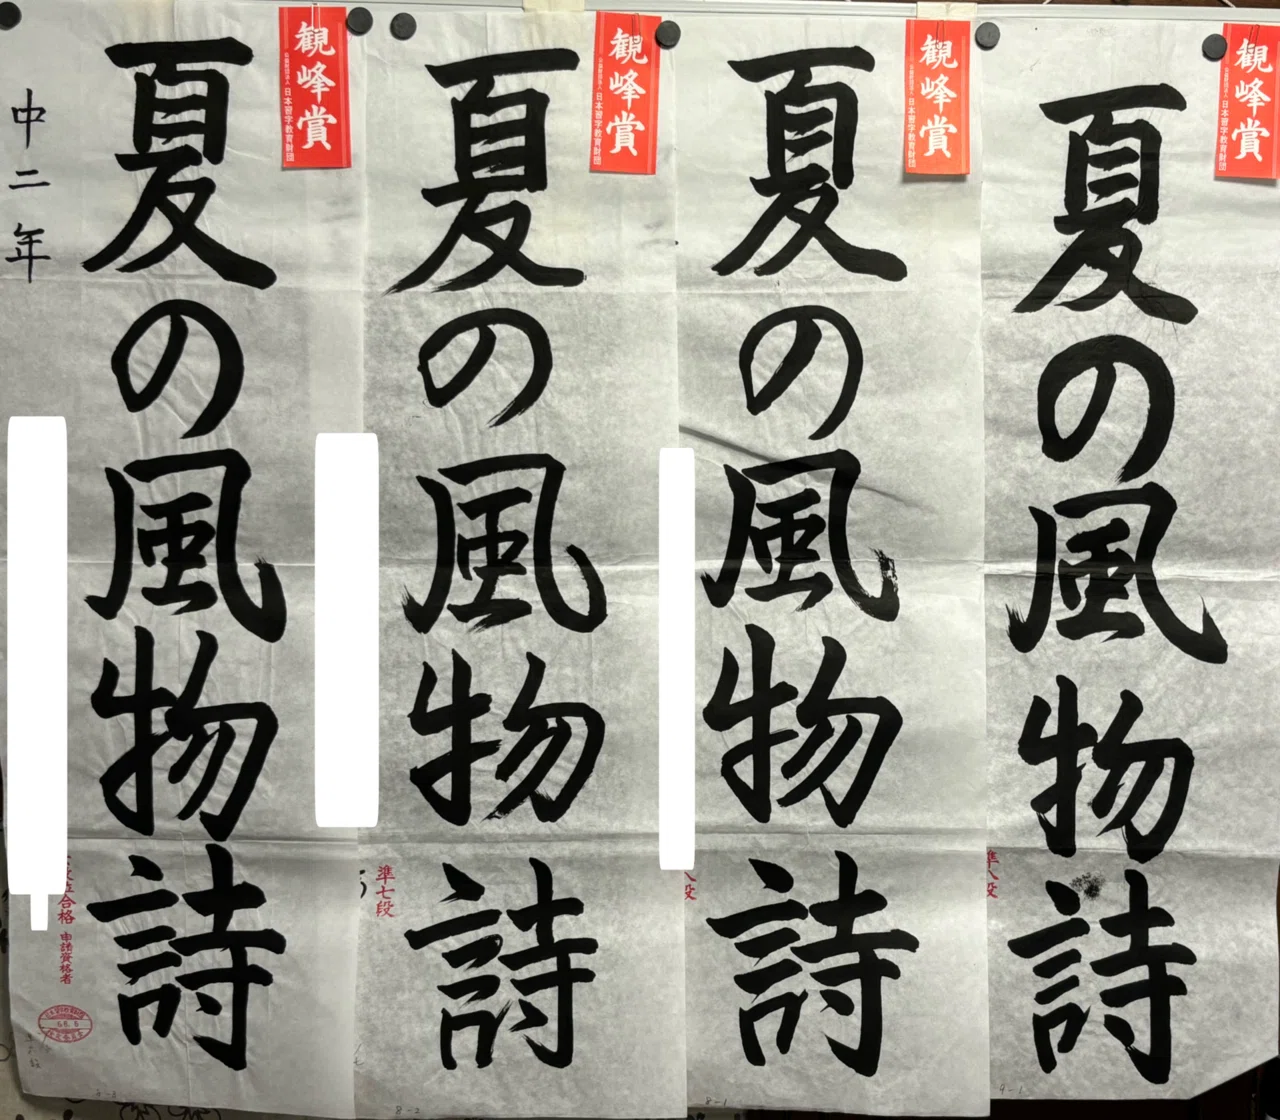 夏の風物詩
観峰賞
公益財団法人 日本習字教育財団
中二年
段位合格 申請資格者
夏の風物詩
観峰賞
公益財団法人 日本習字教育財団
準七段
8-2
夏の風物詩
観峰賞
公益財団法人 日本習字教育財団
8-1
夏の風物詩
観峰賞
公益財団法人 日本習字教育財団
準八段
9-1